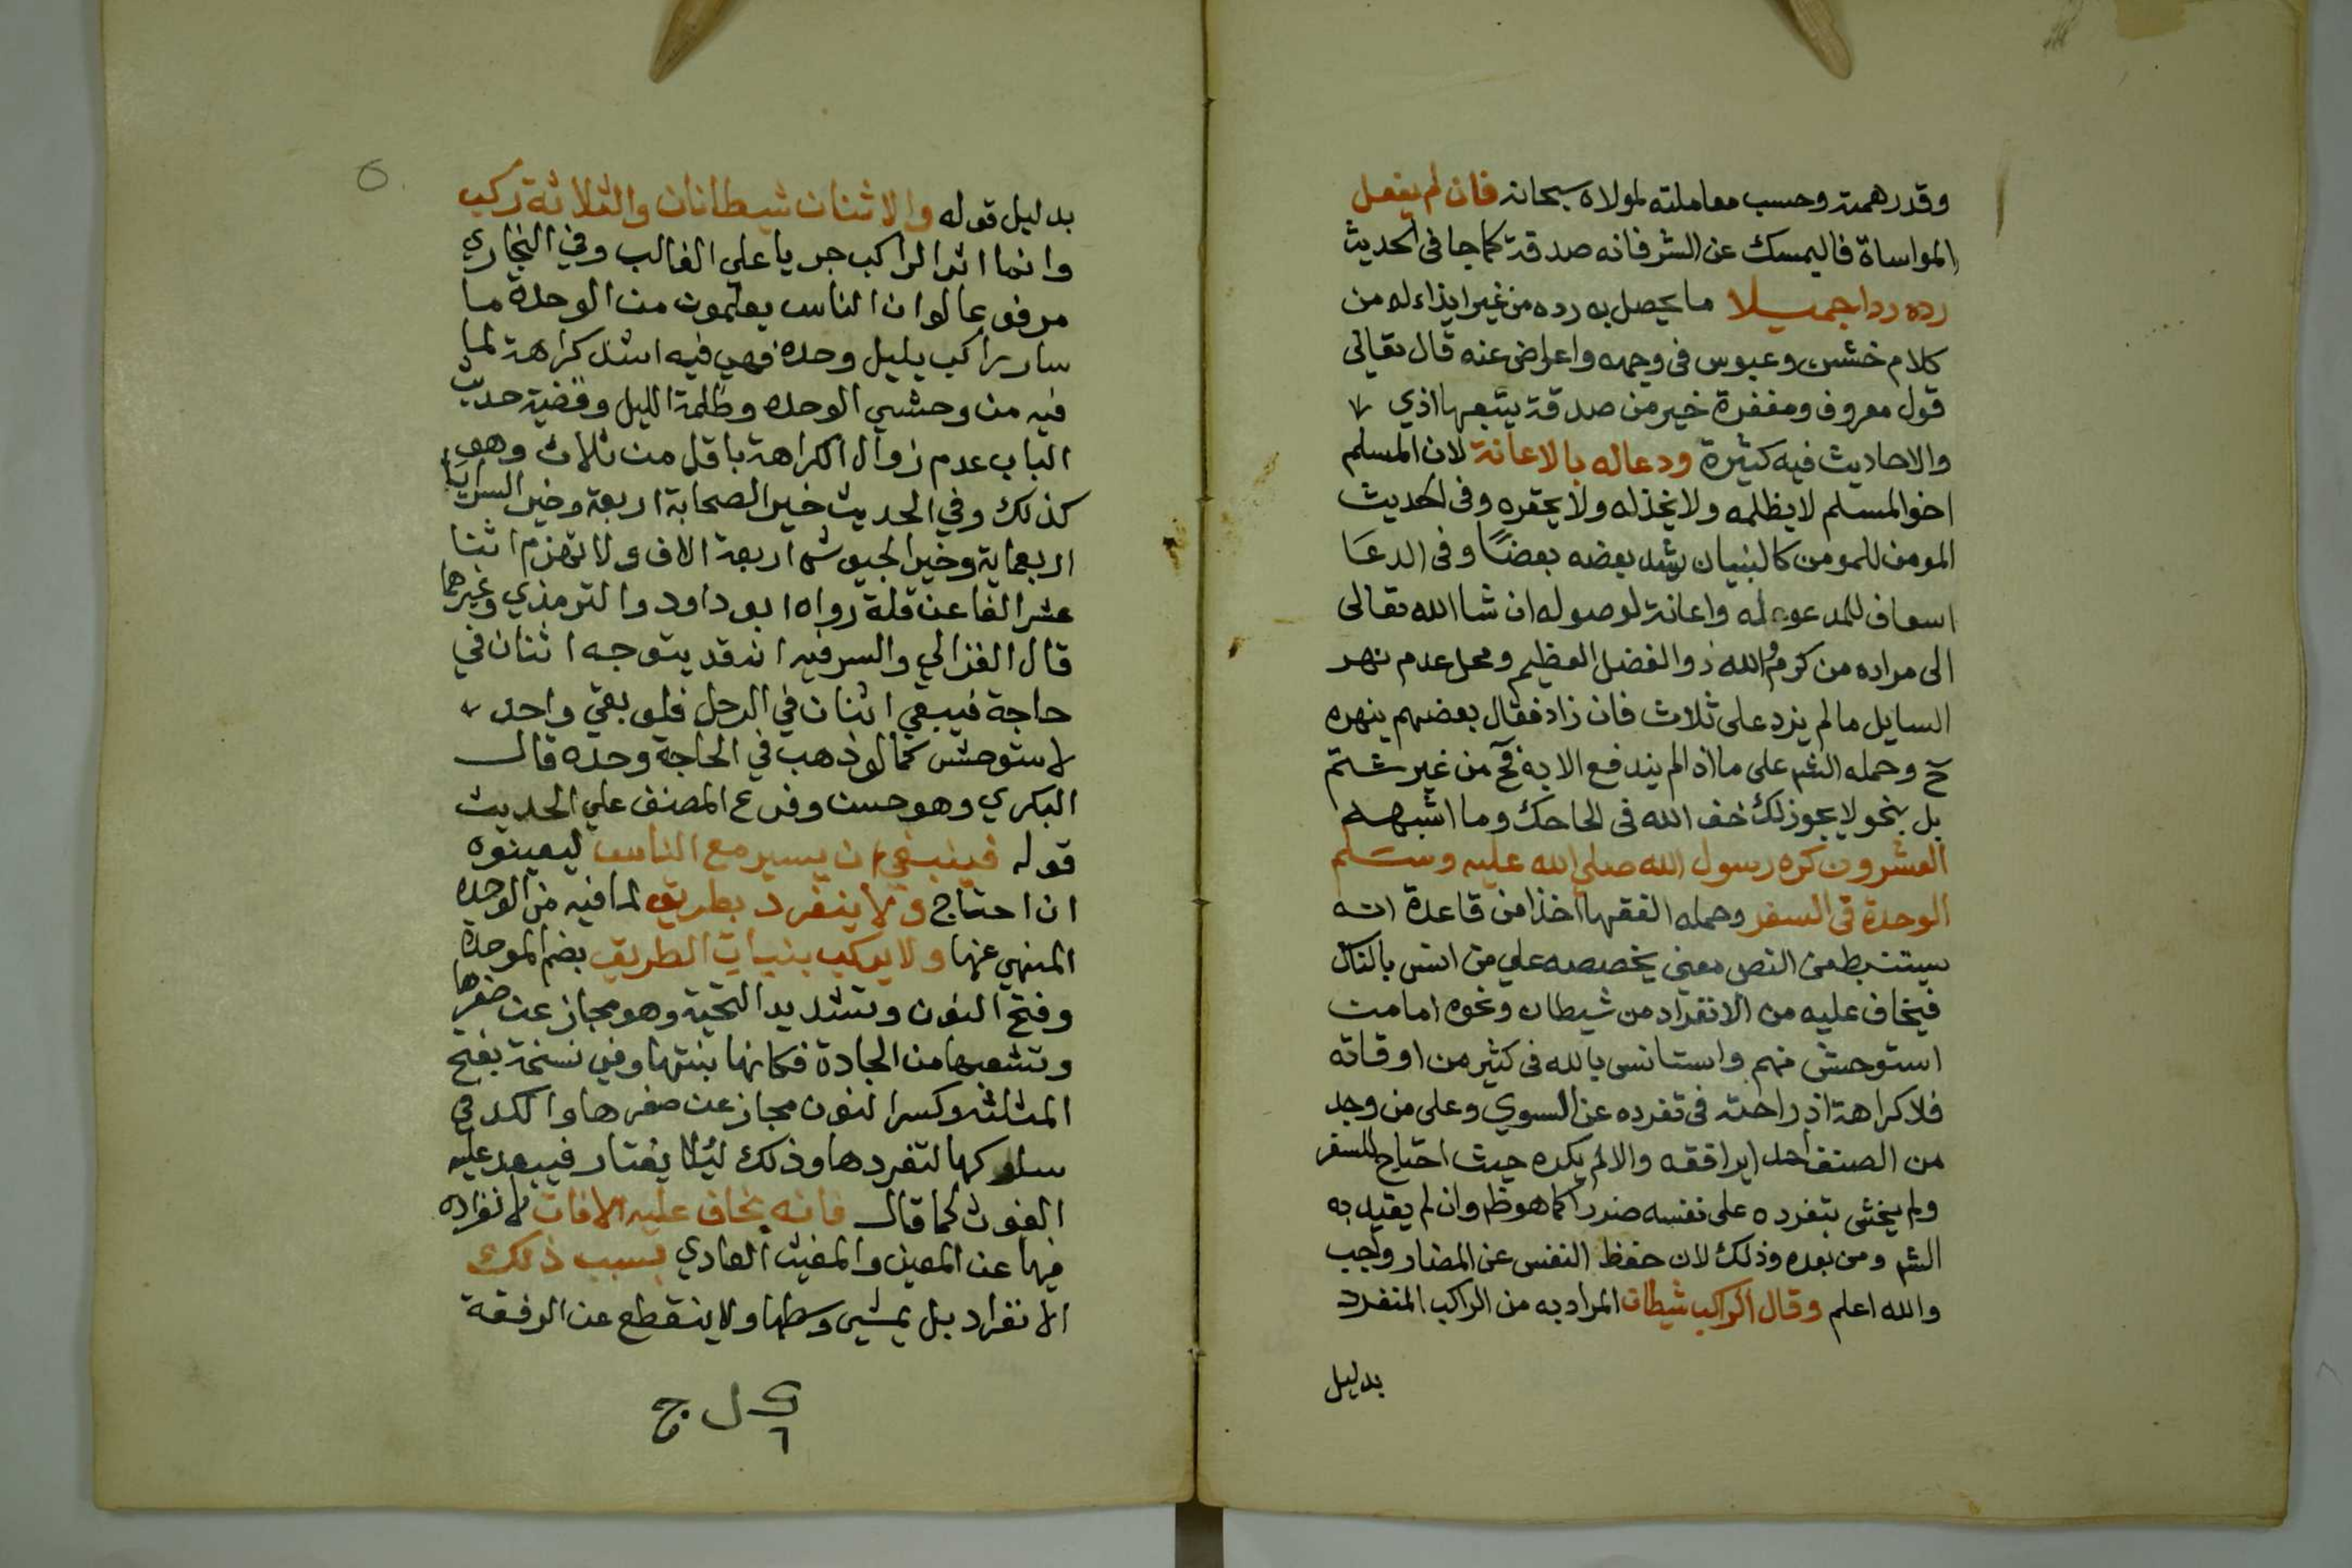 وقدر همته وحسب معاملته لمولاه سبحانه فان لم يفعل
المواساة فاليمسك عن الشر فانه صدقة كما جا في الحديث
رده ردا جميلا ما يحصل به رده من غير ايذاء له من
كلام خشن وعبوس في وجهه واعراض عنه قال تعالى
قول معروف ومغفرة خير من صدقة يتبعها اذي
والاحاديث فيه كثيرة ودعا له بالاعانة لان المسلم
اخو المسلم لا يظلمه ولا يخذله ولا يحقره وفي الحديث
المومن للمومن كالبنيان يشد بعضه بعضًا وفي الدعَا
اسعاف للمدعو له واعانة لوصوله ان شا الله تعالى
الى مراده من كرم والله ذو الفضل العظيم ومحل عدم نهر
السايل ما لم يزد على ثلاث فان زاد فقال بعضهم ينهره
ح وحمله الشم على ما اذا لم يندفع الا به فح من غير شتم
بل بنحو لا يجوز لك خف الله في الحاحك وما اشبهه
العشرون كره رسول الله صلي الله عليه وسَلم
الوحدة في السفر وحمله الفقها اخذا من قاعدة انه
يستنبط من النص معني يخصصه علي من انس بالناس
فيخاف عليه من الانفراد من شيطان ونحوه اما من
استوحش منهم واستانس بالله في كثير من اوقاته
فلا كراهة اذ راحته في تفرده عن السوي وعلى من وجد
من الصنف احدا يرافقه والا لم يكره حيث احتاج للسفر
ولم يخش بتفرده على نفسه ضررا كما هو ظم وان لم يقيد به
الشم ومن بعده وذلك لان حفظ النفس عن المضار واجب
والله اعلم وقال الراكب شيطان المراد به من الراكب المنفرد
بدليل
بدليل قوله والاثنان شيطانان والثلاثة ركب
وانما اثر الراكب جريا علي الغالب وفي البخاري
مرفوعا لو ان الناس يعلمون من الوحدة ما
سار راكب بليل وحده فهي فيه اشد كراهة لما
فيه من وحشي الوحده وظلمة الليل وقضية حديث
الباب عدم زوال الكراهة باقل من ثلاث وهو
كذلك وفي الحديث خير الصحابة اربعة وخير السرايا
اربعماية وخير الجيوش اربعة الاف ولا تهزم اثنا
عشر الفا عن قلة رواه ابو داود والترمذي وغيرهما
قال الغزالي والسر فيه انه قد يتوجه اثنان في
حاجة فيبقي اثنان في الرحل فلو بقي واحد
لاستوحش كما لو ذهب في الحاجة وحده قال
البكري وهو حسن وفرع المصنف علي الحديث
قوله فينبغي ان يسير مع الناس ليعينوه
ان احتاج ولا ينفرد بطريق لما فيه من الوحدة
المنهي عنها ولا يركب بنيات الطريق بضم الموحدة
وفتح النون وتشديد التحتية وهو مجاز عن صغرها
وتشعبها من الجادة فكانها بنتها وفي نسخة بفتح
المثلثه وكسر النون مجاز عن صغرها والكد في
سلوكها لتفردها وذلك ليلا يغتار فيبعد عليه
الغوث كما قال فانه يخاف عليه الافات لانفراده
فيها عن المعين والمغيث العادي بسبب ذلك
الانفراد بل يمشي وسطها ولا ينقطع عن الرفقة